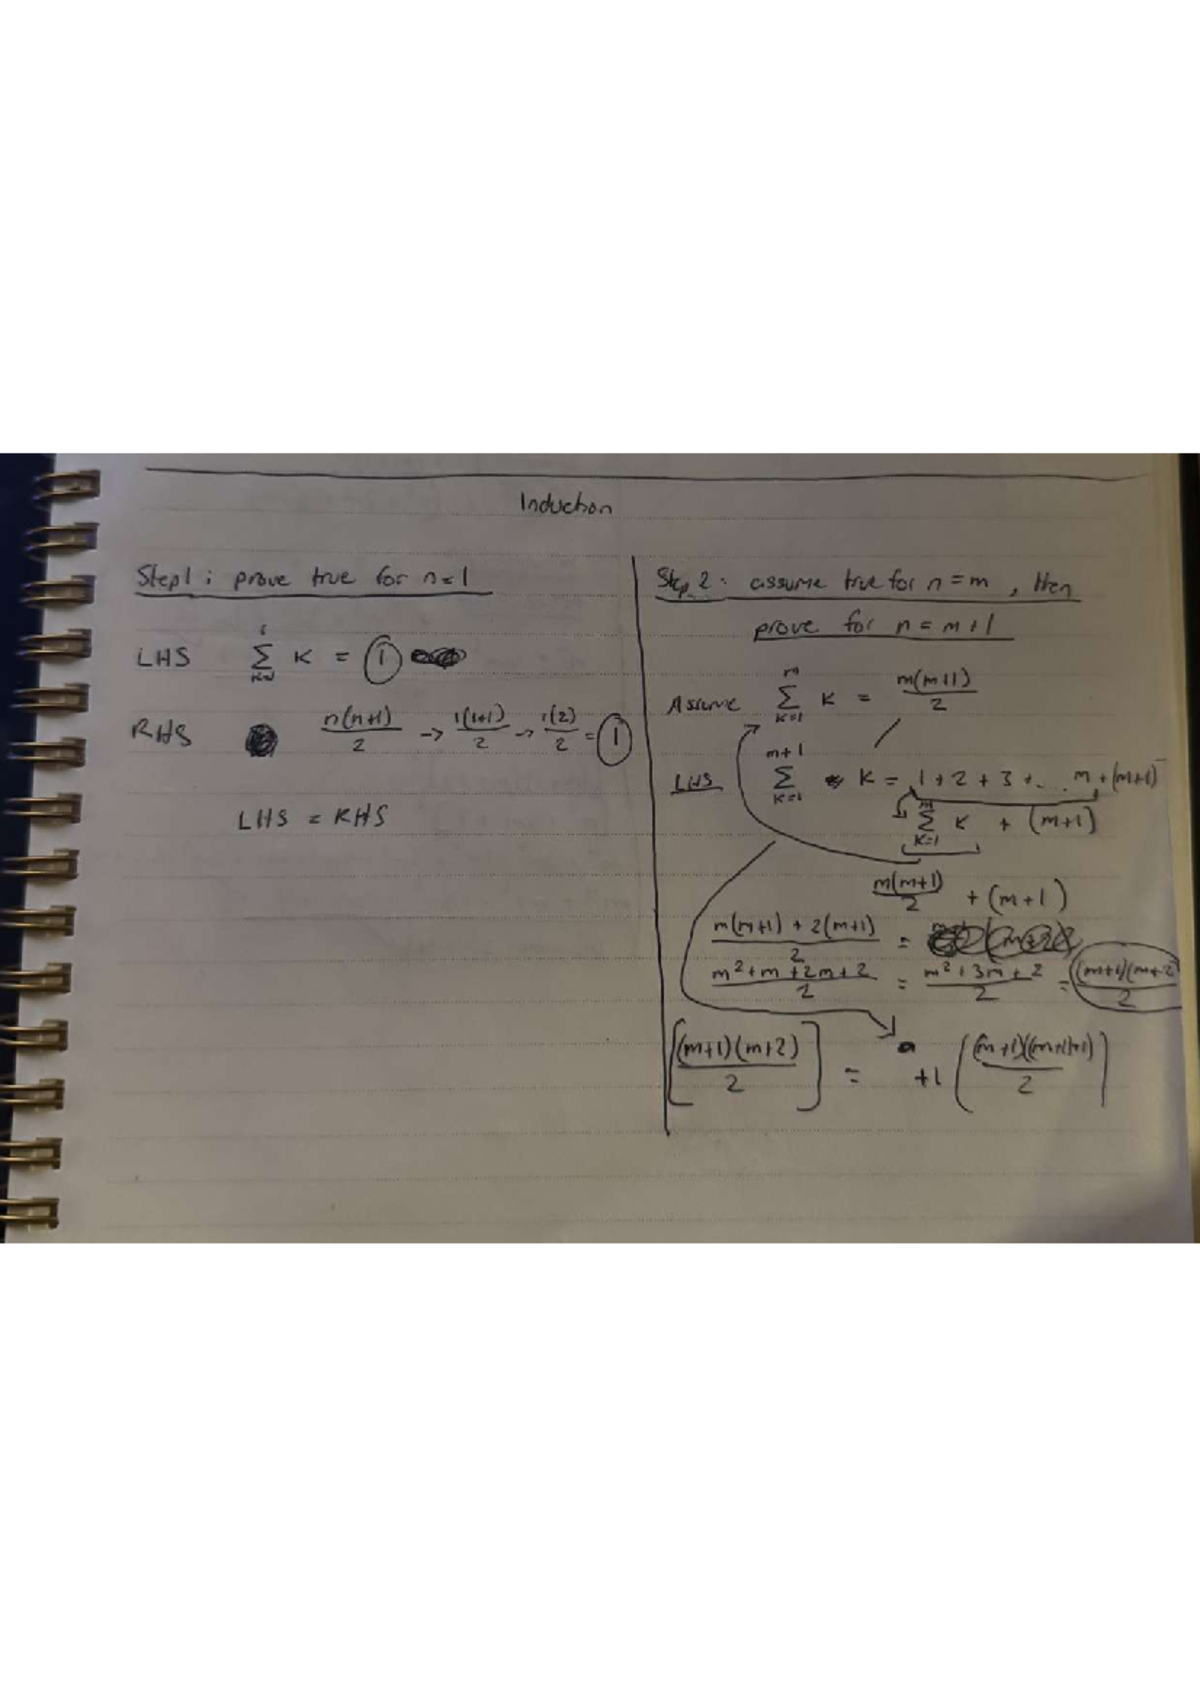 Induction
Step 1 : prove true for n=1
LHS ∑ K = 1
RHS n(n+1)/2 → 1(1+1)/2 → 1(2)/2 = 1
LHS = RHS
Step 2 : assume true for n = m , then
prove for n = m+1
Assume ∑_{k=1}^{m} K = m(m+1)/2
LHS ∑_{k=1}^{m+1} K = 1 + 2 + 3 + ... m + (m+1)
∑_{k=1}^{m} K + (m+1)
m(m+1)/2 + (m+1)
m(m+1) + 2(m+1)/2 =
m²+m+2m+2/2 = m²+3m+2/2 = (m+1)(m+2)/2
[(m+1)(m+2)/2] = +1 ((m+1)((m+1)+1)/2)